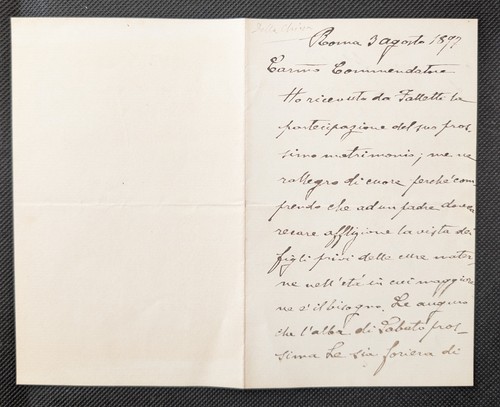 Della Chiesa
Roma 3 agosto 1897
Carmo Commendatore
Ho ricevuto da Falletti la
partecipazione del suo pros-
simo matrimonio; me ne
rallegro di cuore perché com-
prendo che ad un padre dovea
recare afflizione la vista dei
figli privi delle cure mater-
ne nell'età in cui maggiore
ne è il bisogno. Le auguro
che l'alba di Sabato pros-
sima Le sia foriera di